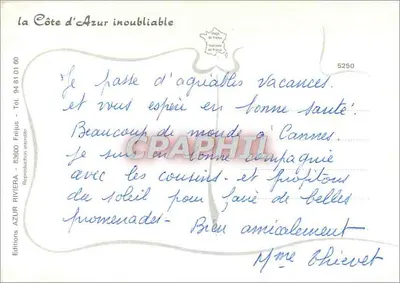 la Côte d'Azur inoubliable
5250
Je passe d'agréables vacances.
et vous espère en bonne santé.
Beaucoup de monde à Cannes.
Je suis en bonne compagnie
avec les cousins. et profitons
du soleil pour faire de belles
promenades. Bien amicalement
Mme Thievet
Editions AZUR RIVIERA - 83600 Fréjus - Tél. 94 81 01 60
Reproduction interdite